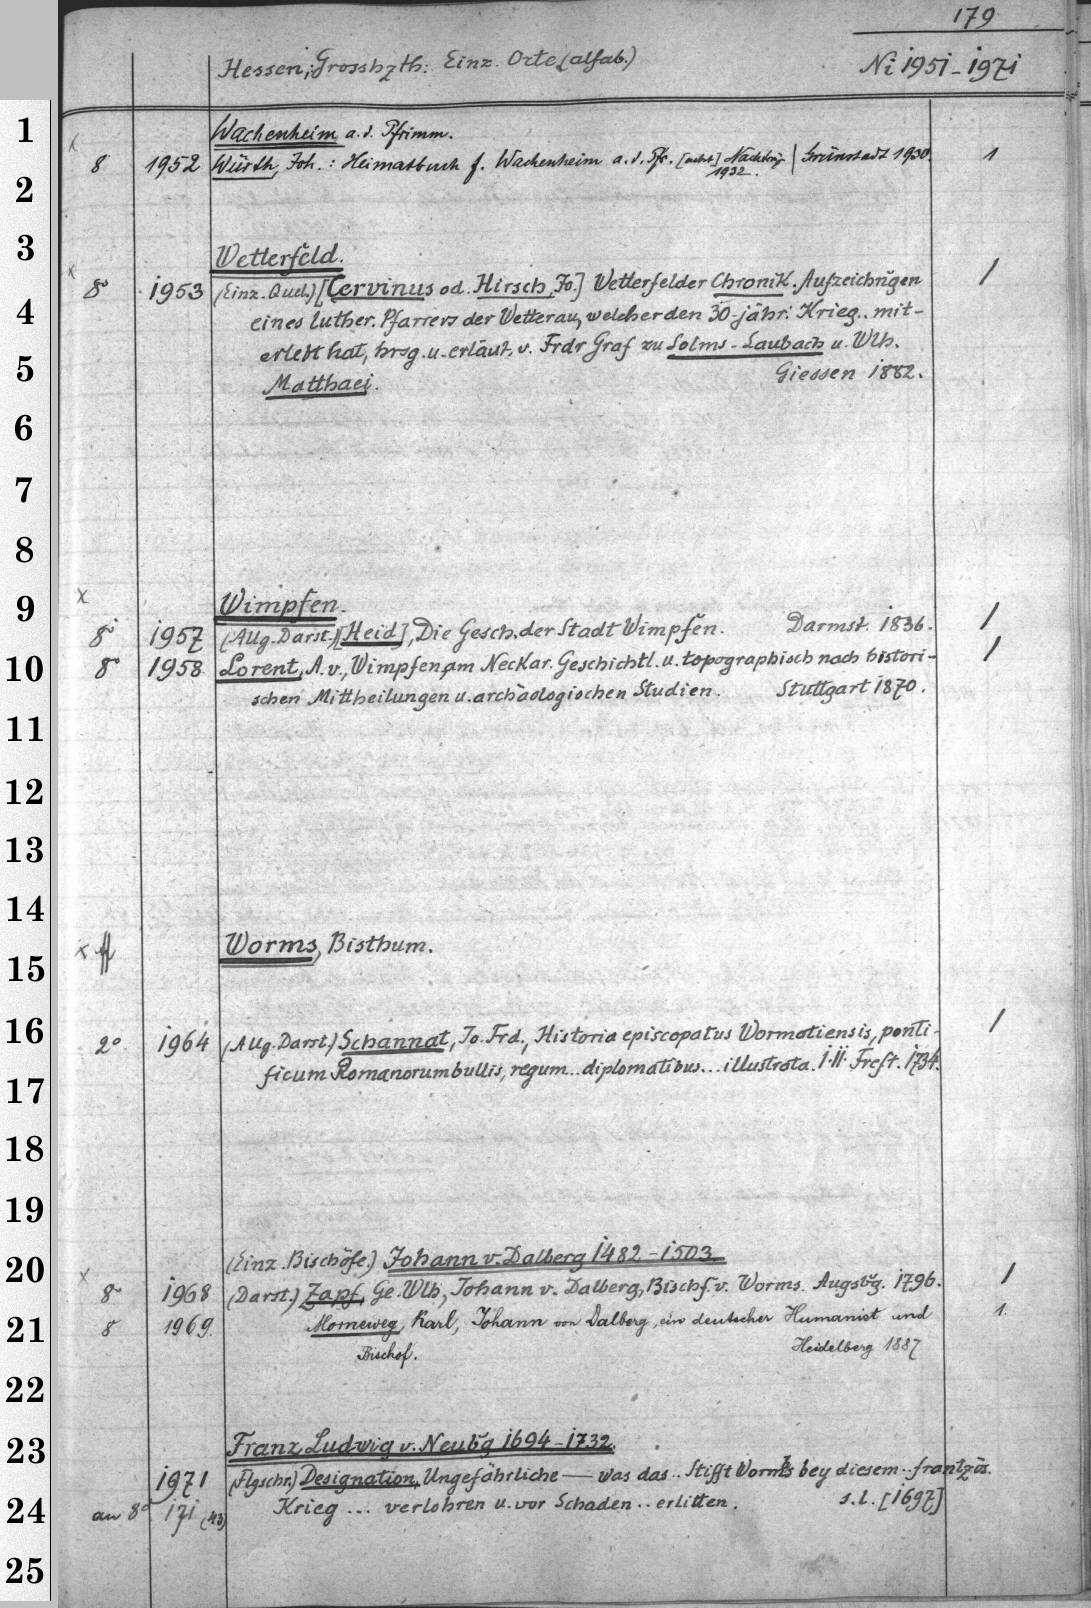 179
Hessen, Grosshzth: Einz. Orte (alfab.) Ni 1951-1971
1
Wachenheim a. d. Pfrimm.
x
8 1952 Würth, Joh.: Heimatbuch f. Wachenheim a. d. Pfr. [nebst] Nachtrag 1932. | Grünstadt 1930. 1
2
3
Wetterfeld.
x
8° 1953 (Einz. Quel.) [Cervinus od. Hirsch, Jo.] Wetterfelder Chronik. Aufzeichn̄gen /
4
eines luther. Pfarrers der Wetterau, welcher den 30-jähr. Krieg .. mit-
erlebt hat, hrsg. u. erläut. v. Frdr Graf zu Solms-Laubach u. Wlh.
5
Matthaei. Giessen 1882.
6
7
8
9
x Wimpfen.
8° 1957 (Allg. Darst.) [Heid], Die Gesch. der Stadt Wimpfen. Darmst. 1836. /
10
8° 1958 Lorent, A. v., Wimpfen am Neckar. Geschichtl. u. topographisch nach histori- /
schen Mittheilungen u. archäologischen Studien. Stuttgart 1870.
11
12
13
14
x Worms, Bisthum.
15
16
2° 1964 (Allg. Darst.) Schannat, Jo. Frd., Historia episcopatus Wormatiensis, ponti- /
ficum Romanorum bullis, regum .. diplomatibus ... illustrata. I. II. Freft. 1734.
17
18
19
20
(Einz. Bischöfe.) Johann v. Dalberg 1482-1503
x
8° 1968 (Darst.) Zapf, Ge. Wlh, Johann v. Dalberg, Bischf. v. Worms. Augsbg. 1796. /
21
8 1969. Morneweg, Karl, Johann von Dalberg, ein deutscher Humanist und 1.
Bischof. Heidelberg 1887
22
23
Franz Ludwig v. Neubg 1694-1732.
1971 (Flgschr.) Designation, Ungefährliche — was das .. Stifft Worms bey diesem .. frantzös.
24
an 8° 171 (43) Krieg ... verlohren u. vor Schaden .. erlitten. s. l. [1697]
25